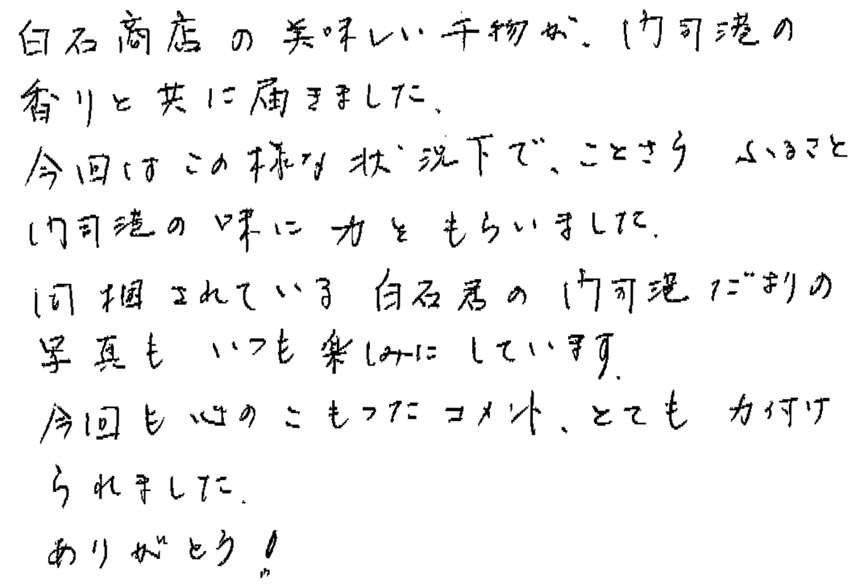 白石商店の美味しい干物が、内司港の
香りと共に届きました、
今回はこの様な状況下で、ことさら ふるさと
内司港の味に力をもらいました、
同梱されている 白石君の内司港だよりの
写真も いつも楽しみにしています。
今回も心のこもったコメント、とても力付け
られました、
ありがとう!